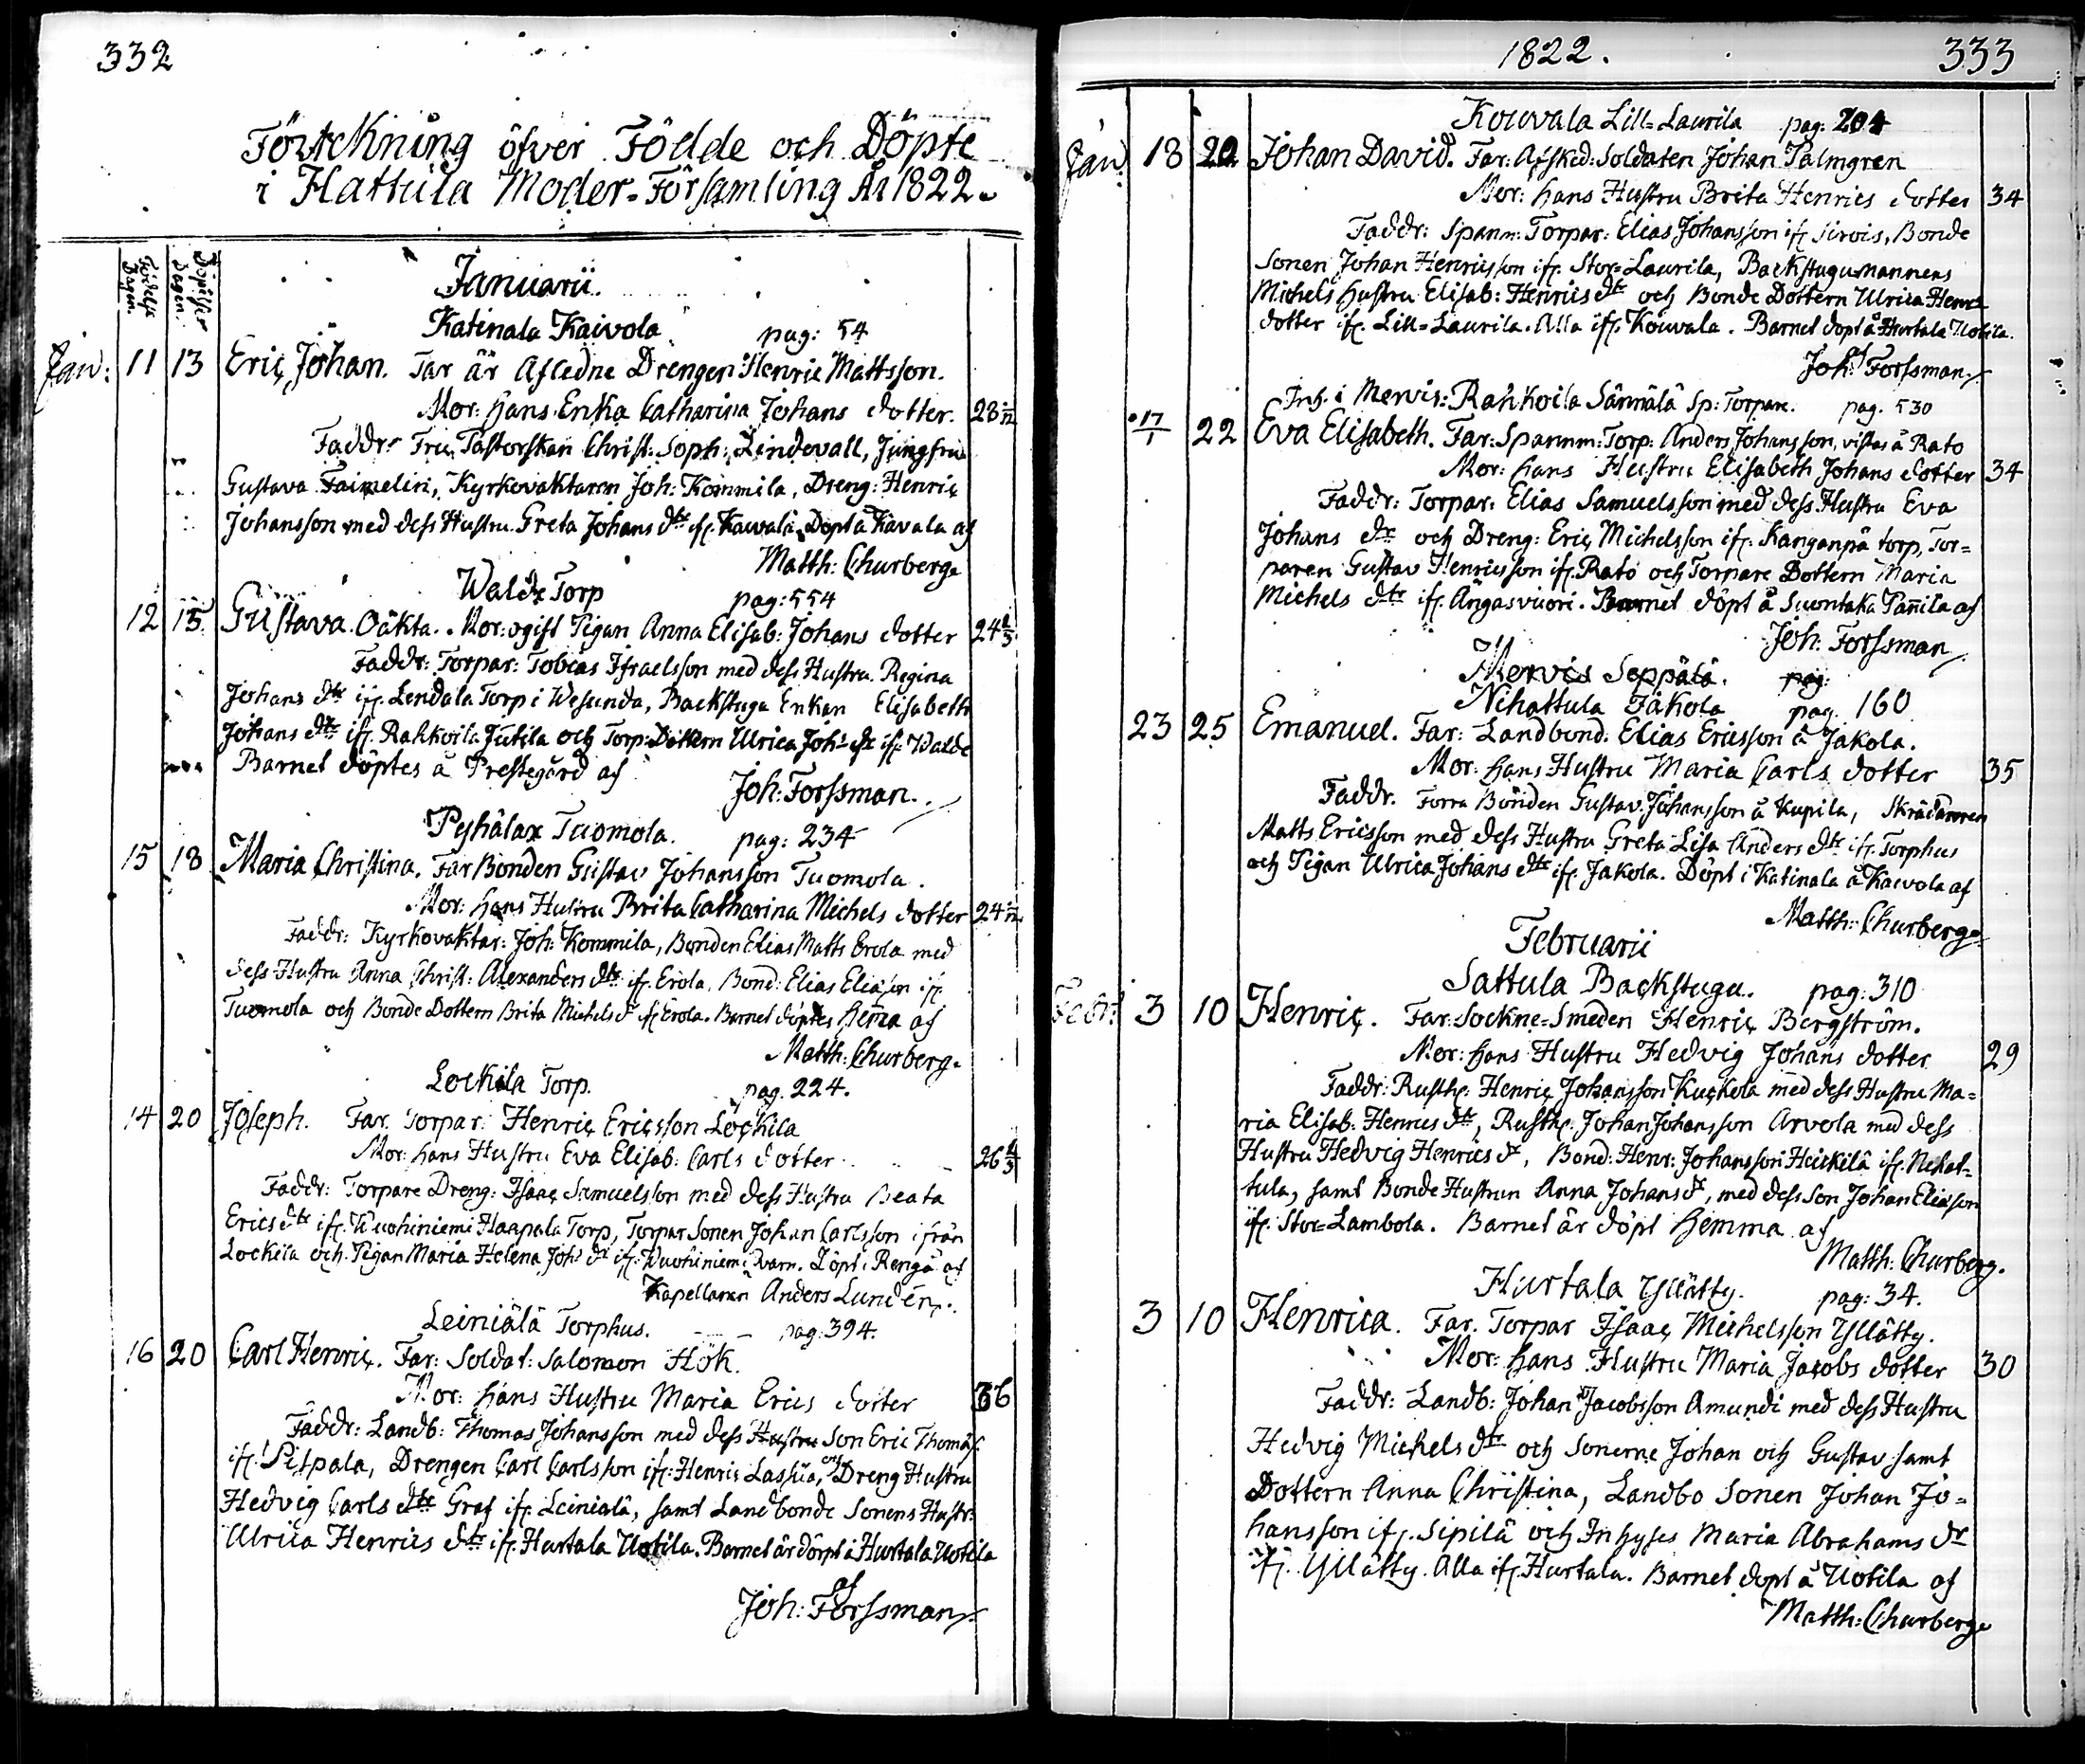 332
Förteckning öfver Födde och Döpte
i Hattula Moder-Församling År 1822.
Födelse Dagen. Döpelse Dagen.
Januarii.
Katinala Kaivola pag: 54
Jan: 11 13 Eric Johan. Far är Afledne Drengen Henric Mattsson.
Mor: Hans Enka Catharina Johans dotter. 28
Faddr: Fru Pastorskan Christ: Soph: Lindevall, Jungfru
Gustava Faimelin, Kyrkovaktaren Joh: Kommila, Dreng: Henric
Johansson med dess Hustru Greta Johans dtr ifr. Kaivala. Döpt å Kavala af
Matth: Churberg.
Walde Torp pag: 554
12 15 Gustava. Oäkta. Mor: ogift Pigan Anna Elisab: Johans dotter 24
Faddr: Torpar: Tobias Israelsson med dess Hustru Regina
Johans dtr ifr. Lendala Torp i Wesunda, Backstugu Enkan Elisabeth
Johans dtr ifr. Rahkoila Jutila och Torp: Dottern Ulrica Joh: dr ifr. Walde
Barnet döptes å Prestegård af
Joh: Forssman.
Pyhälax Tuomola. pag: 234
15 18 Maria Christina. Far Bonden Gustav Johansson Tuomola.
Mor: Hans Hustru Brita Catharina Michels dotter 24
Faddr: Kyrkovaktar: Joh: Kommila, Bonden Elias Matts Erola med
dess Hustru Anna Christ: Alexanders dtr ifr. Erola, Bond: Elias Eliasson ifr
Tuomola och Bonde Dottern Brita Michels dr ifr Erola. Barnet döptes Hemma af
Matth: Churberg.
Lockila Torp. pag. 224.
14 20 Joseph. Far. Torpar: Henric Ericsson Lockila
Mor: hans Hustru Eva Elisab: Carls dotter 26
Faddr: Torpare Dreng: Isaac Samuelsson med dess Hustru Beata
Erics dtr ifr. Wuohiniemi Haapala Torp, Torpar Sonen Johan Carlsson ifrån
Lockila och Pigan Maria Helena Joh: dr ifr: Wuohiniemi Qvarn. Döpt i Rengå af
Kapellanen Anders Lundén.
Leiniälä Torphus. pag: 394.
16 20 Carl Henric. Far: Soldat: Salomon Hök.
Mor: Hans Hustru Maria Erics dotter 36
Faddr: Landb: Thomas Johansson med dess Hustru Son Eric Thomäs:
ifr. Pispala, Drengen Carl Carlsson ifr: Henric Lassila, och Dreng Hustru
Hedvig Carls dtr Graf ifr Leiniälä, samt Landbonde Sonens Hustr:
Ulrica Henrics dtr ifr. Hurtala Uotila. Barnet är döpt å Hurtala Uotila
af
Joh: Forssman
1822. 333
Kouvala Lill-Laurila pag: 204
Jan: 18 20 Johan David. Far: Afsked: Soldaten Johan Palmgren
Mor: hans Hustru Brita Henrics dotter 34
Faddr: Spanm: Torpar: Elias Johansson ifr Sirois, Bonde
Sonen Johan Henricsson ifr. Stor-Laurila, Backstugumannens
Michels Hustru Elisab: Henrics dtr och Bonde Dottern Ulrica Henrics
dotter ifr. Lill-Laurila. Alla ifr. Kouvala. Barnet döpt å Hurtala Uotila.
af
Joh: Forssman.
Inh. i Mervis: Rahkoila Sännälä Sp: Torpare. pag. 530
17/1 22 Eva Elisabeth. Far: Spannm: Torp: Anders Johansson, vistas å Rato
Mor: hans Hustru Elisabeth Johans dotter 34
Faddr: Torpar: Elias Samuelsson med dess Hustru Eva
Johans dr och Dreng: Eric Michelsson ifr. Kanganpä torp, Tor-
paren Gustav Henricsson ifr. Rato och Torpare Dottern Maria
Michels dtr ifr. Ängasvuori. Barnet döpt å Suontaka Pañila af
Joh: Forssman
Mervis Seppälä. pag:
Nihattula Jakola pag. 160
23 25 Emanuel. Far: Landbond: Elias Ericsson å Jakola.
Mor: hans Hustru Maria Carls dotter 35
Faddr. Forra Bönden Gustav Johansson å Kupila, Skräddaren
Matts Ericsson med dess Hustru Greta Lisa Anders dtr ifr. Torphus
och Pigan Ulrica Johans dtr ifr. Jakola. Döpt i Katinala å Kaivola af
Matth: Churberg
Februarii
Sattula Backstugu. pag: 310
Febr: 3 10 Henric. Far: Sockne-Smeden Henric Bergström.
Mor: hans Hustru Hedvig Johans dotter 29
Faddr: Rusth: Henric Johansson Kuckola med dess Hustru Ma-
ria Elisab: Henrics dtr, Rusth: Johan Johansson Arvola med dess
Hustru Hedvig Henrics dr, Bond: Henr: Johansson Heickilä ifr. Nihat-
tula, samt Bonde Hustrun Anna Johans dr, med dess Son Johan Eliasson
ifr. Stor-Lambola. Barnet är döpt Hemma af
Matth: Churberg.
Hurtala Yllätty. pag: 34.
3 10 Henrica. Far. Torpar Isaac Michelsson Yllätty.
Mor: hans Hustru Maria Jacobs dotter 30
Faddr: Landb: Johan Jacobsson Amundi med dess Hustru
Hedvig Michels dtr och Sonerne Johan och Gustav samt
Dottern Anna Christina, Landbo Sonen Johan Jo-
hansson ifr. Sipilä och Inhyses Maria Abrahams dr
ifr. Yllätty. Alla ifr. Hurtala. Barnet döpt å Uotila af
Matth: Churberg